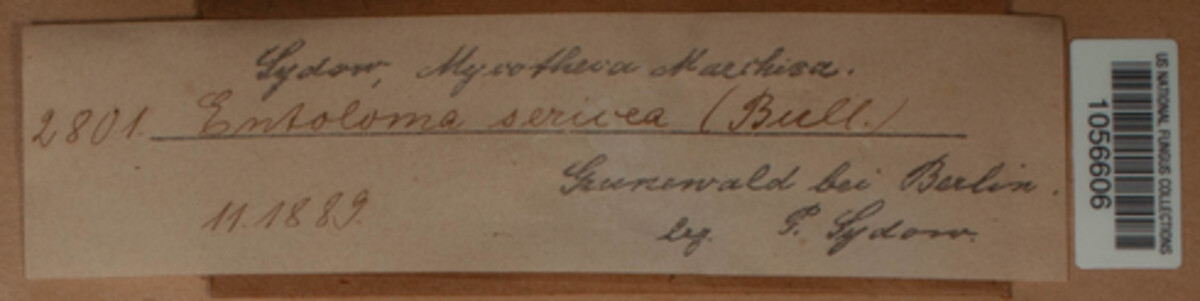 Sydow, Mycotheca Marchica.
2801. Entoloma sericea (Bull.)
Grunewald bei Berlin.
11.1889.
leg. P. Sydow.
US NATIONAL FUNGUS COLLECTIONS
1056606